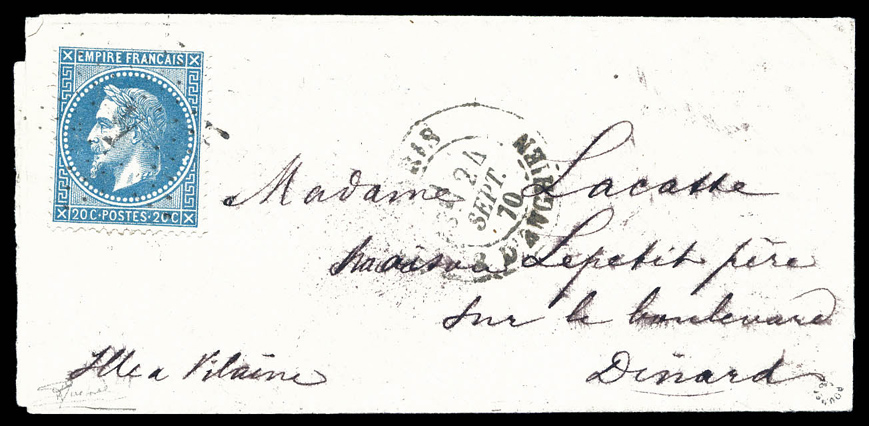 EMPIRE FRANCAIS
20C·POSTES·20C
RIS
R. D'ENGHIEN
24
SEPT.
70
Madame Lacasse
maison Lepetit père
sur le boulevard
Dinard
Ille a Vilaine